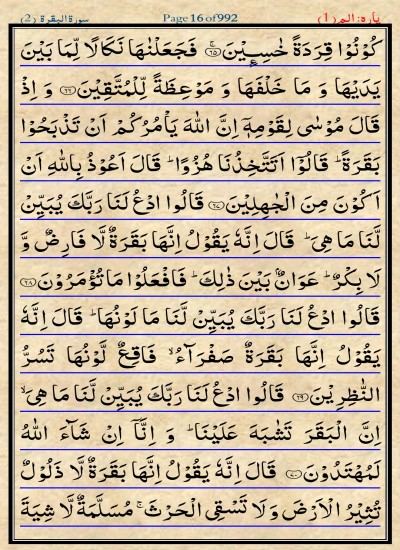 پارہ: الم (1) Page 16 of 992 سورۃ البقرۃ (2)
كُوۡنُوۡا قِرَدَةً خٰسِـِٕيۡنَ‌ۚ‏ ﴿۶۵﴾ فَجَعَلۡنٰهَا نَكَالًا لِّمَا بَيۡنَ
يَدَيۡهَا وَ مَا خَلۡفَهَا وَ مَوۡعِظَةً لِّلۡمُتَّقِيۡنَ ﴿۶۶﴾ وَ اِذۡ
قَالَ مُوۡسٰى لِقَوۡمِهٖۤ اِنَّ اللّٰهَ يَاۡمُرُكُمۡ اَنۡ تَذۡبَحُوۡا
بَقَرَةً‌ ؕ قَالُوۡٓا اَتَتَّخِذُنَا هُزُوًا ‌ؕ قَالَ اَعُوۡذُ بِاللّٰهِ اَنۡ
اَكُوۡنَ مِنَ الۡجٰهِلِيۡنَ ﴿۶۷﴾ قَالُوا ادۡعُ لَنَا رَبَّكَ يُبَيِّنۡ
لَّنَا مَا هِىَ‌ؕ قَالَ اِنَّهٗ يَقُوۡلُ اِنَّهَا بَقَرَةٌ لَّا فَارِضٌ وَّ
لَا بِكۡرٌؕ عَوَانٌۢ بَيۡنَ ذٰلِكَ‌ؕ فَافۡعَلُوۡا مَا تُؤۡمَرُوۡنَ ﴿۶۸﴾
قَالُوا ادۡعُ لَنَا رَبَّكَ يُبَيِّنۡ لَّنَا مَا لَوۡنُهَا ‌ؕ قَالَ اِنَّهٗ
يَقُوۡلُ اِنَّهَا بَقَرَةٌ صَفۡرَآءُۙ فَاقِعٌ لَّوۡنُهَا تَسُرُّ
النّٰظِرِيۡنَ ﴿۶۹﴾ قَالُوا ادۡعُ لَنَا رَبَّكَ يُبَيِّنۡ لَّنَا مَا هِىَۙ
اِنَّ الۡبَقَرَ تَشٰبَهَ عَلَيۡنَا ؕ وَ اِنَّاۤ اِنۡ شَآءَ اللّٰهُ
لَمُهۡتَدُوۡنَ ﴿۷۰﴾ قَالَ اِنَّهٗ يَقُوۡلُ اِنَّهَا بَقَرَةٌ لَّا ذَلُوۡلٌ
تُثِيۡرُ الۡاَرۡضَ وَ لَا تَسۡقِى الۡحَـرۡثَ ‌ۚ مُسَلَّمَةٌ لَّا شِيَةَ